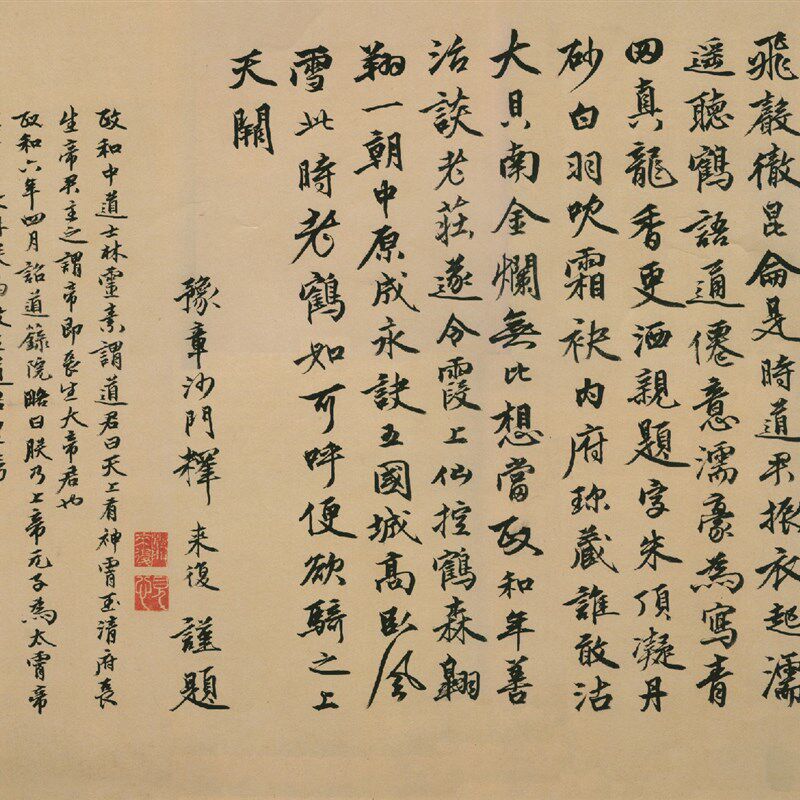 飛聲徹昆侖是時道君振衣起濡
遥聽鶴語通僊意濡豪為寫青
田真龍香更洒親題字朱頂凝丹
砂白羽吹霜袂内府珎藏誰敢沽
大貝南金爛無比想當政和年善
治談老莊遂令霞上仙控鶴森翱
翔一朝中原成永訣五國城高卧風
雪此時老鶴如可呼便欲騎之上
天關
豫章沙門釋来復謹題
政和中道士林靈素謂道君曰天上有神霄玉清府長
生帝君主之謂帝即長生大帝君也
政和六年四月詔道籙院略曰朕乃上帝元子為太霄帝